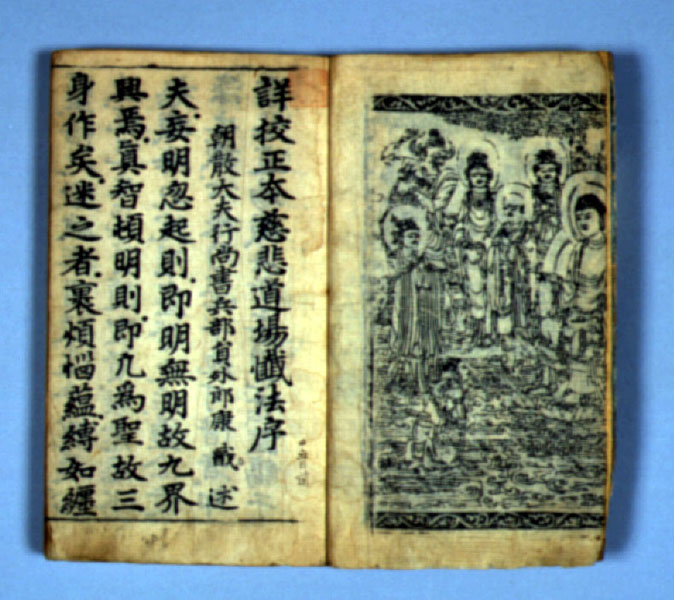 詳挍正本慈悲道場懺法序
朝散大夫行尚書兵部員外郎康戩述
夫妄明忽起則即明無明故九界
興焉眞智頓明則即凡爲聖故三
身作矣迷之者裹煩惱蘊縛如纏